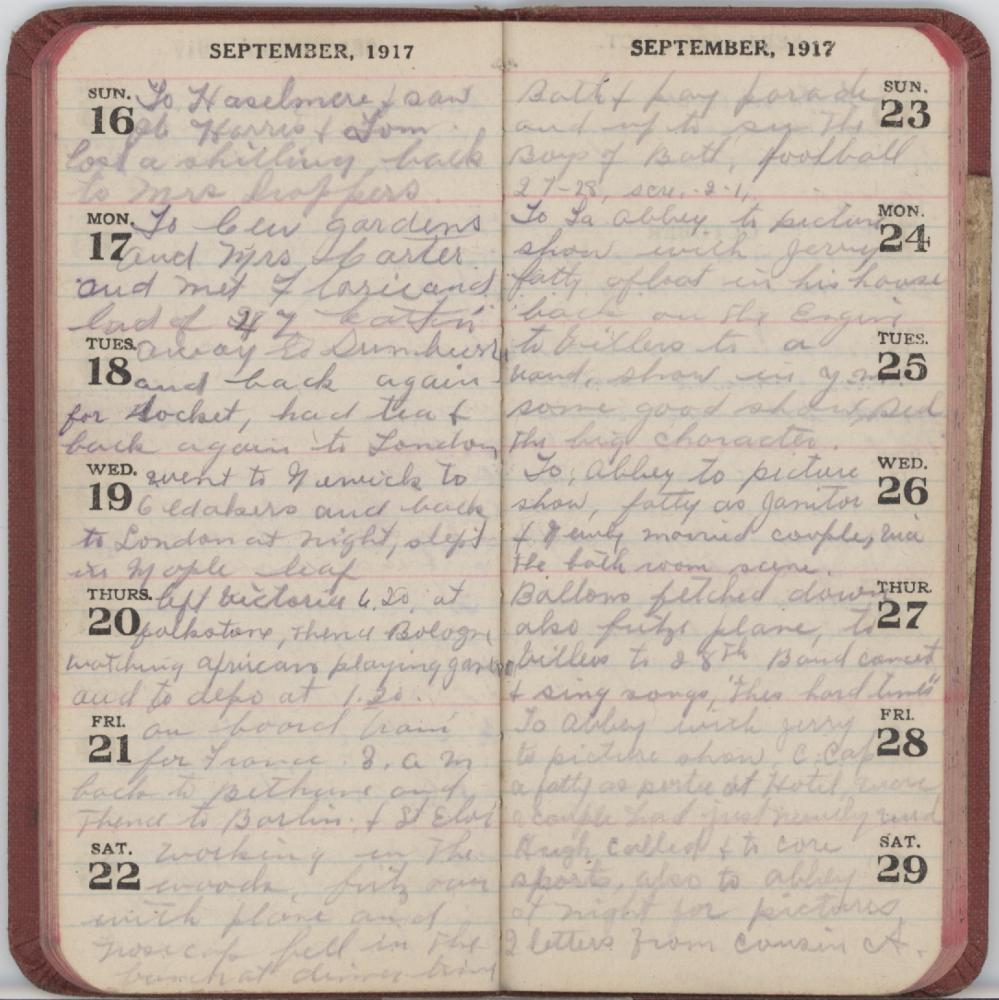 SEPTEMBER, 1917
SUN. 16 To Haselmere & saw
Harris & Tom
Lost a shilling, back
to Mrs Croppers.
MON. 17 To Cew gardens
and Mrs Carter
and met Florie and
lad of 47
TUES. 18 away to
and back again
for Locket, had tea &
back again to London
WED. 19 went to Newick to
Oldakers and back
to London at night, slept
in Maple leaf
THURS. 20 left Victoria 6.20, at
folkstone, thence Bologne
watching africans playing
and to depo at 1.20.
FRI. 21 on board train
for France 8. a m
back to Bethune and
thence to Barlin & St Eloi
SAT. 22 working in the
woods, fritz over
with plane and
nosecap fell in the
bunch at dinner time
SEPTEMBER, 1917
SUN. 23 Bath & pay parade
and up to see the
Boys of Batt, football
27-28, score. 2-1,
MON. 24 To La abbey to picture
show with Jerry
fatty afloat in his house
back on the Engine
TUES. 25 to Villers to a
show in y.m.
some good
the big character.
WED. 26 To, Abbey to picture
show, fatty as Janitor
& Newly married couple, via
the bath room scene.
THUR. 27 Ballons fetched down
also fritz plane, to
Villers to 28th Band concert
& sing songs, "thes hard times"
FRI. 28 To Abbey with Jerry
to picture show, C. Cap
a fatty as porter at Hotel where
a couple had just newly wed
SAT. 29 Hugh called & to core
sports, also to abbey
at night for pictures,
2 letters from cousin A.